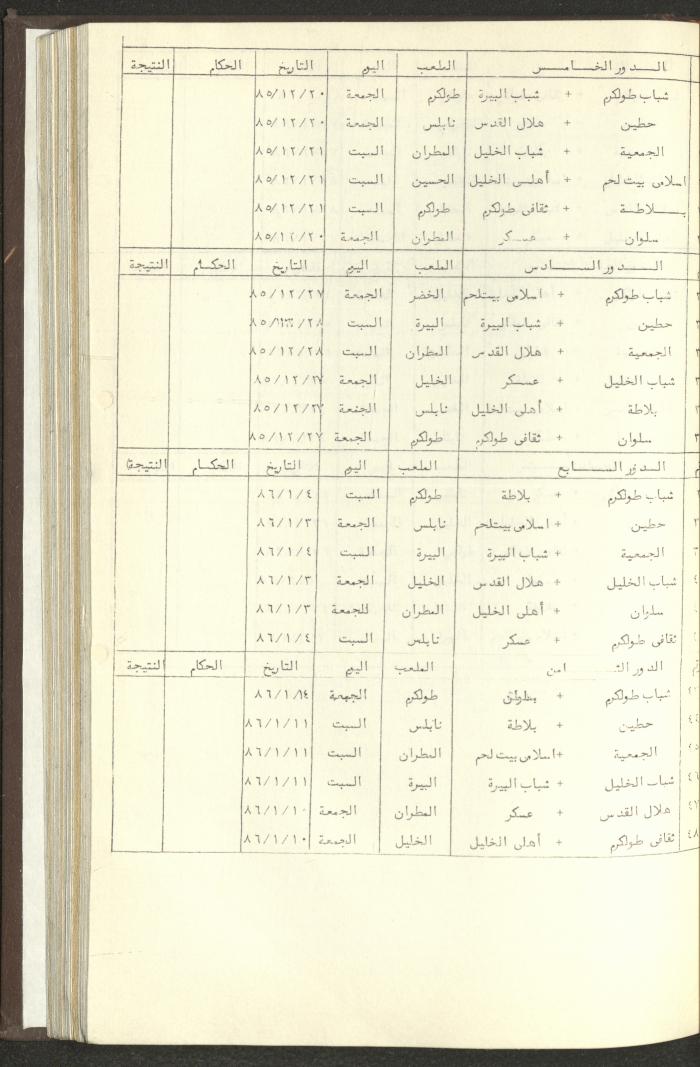 الـــدور الخـــامـــس الملعب اليم التاريخ الحكام النتيجة
شباب طولكرم + شباب البيرة طولكرم الجمعة ٨٥/١٢/٢٠
حطين + هلال القدس نابلس الجمعة ٨٥/١٢/٢٠
الجمعية + شباب الخليل المطران السبت ٨٥/١٢/٢١
اسلامي بيت لحم + أهلي الخليل الحسين السبت ٨٥/١٢/٢١
بـــلاطـة + ثقافي طولكرم طولكرم السبت ٨٥/١٢/٢١
سلوان + عسكر المطران الجمعة ٨٥/١٢/٢٠
الـــدور الســـادس الملعب اليم التاريخ الحكـام النتيجة
شباب طولكرم + اسلامي بيتلحم الخضر الجمعة ٨٥/١٢/٢٧
حطين + شباب البيرة البيرة السبت
الجمعية + هلال القدس المطران السبت ٨٥/١٢/٢٨
شباب الخليل + عسكر الخليل الجمعة ٨٥/١٢/٢٧
بلاطة + أهلي الخليل نابلس الجمعة ٨٥/١٢/٢٧
سلوان + ثقافي طولكرم طولكرم الجمعة ٨٥/١٢/٢٧
م الــدور الســـابع الملعب اليم التاريخ الحكـام النتيجة
شباب طولكرم + بلاطة طولكرم السبت ٨٦/١/٤
حطين + اسلامي بيتلحم نابلس الجمعة ٨٦/١/٣
الجمعية + شباب البيرة البيرة السبت ٨٦/١/٤
شباب الخليل + هلال القدس الخليل الجمعة ٨٦/١/٣
سلوان + أهلي الخليل المطران الجمعة ٨٦/١/٣
ثقافي طولكرم + عسكر نابلس السبت ٨٦/١/٤
م الدور الثـ امن الملعب اليم التاريخ الحكام النتيجة
شباب طولكرم + طولكرم الجمعة
حطين + بلاطة نابلس السبت ٨٦/١/١١
الجمعية + اسلامي بيت لحم المطران السبت ٨٦/١/١١
٤٦ شباب الخليل + شباب البيرة البيرة السبت ٨٦/١/١١
٤٧ هلال القدس + عسكر المطران الجمعة ٨٦/١/١٠
٤٨ ثقافي طولكرم + أهلي الخليل الخليل الجمعة ٨٦/١/١٠